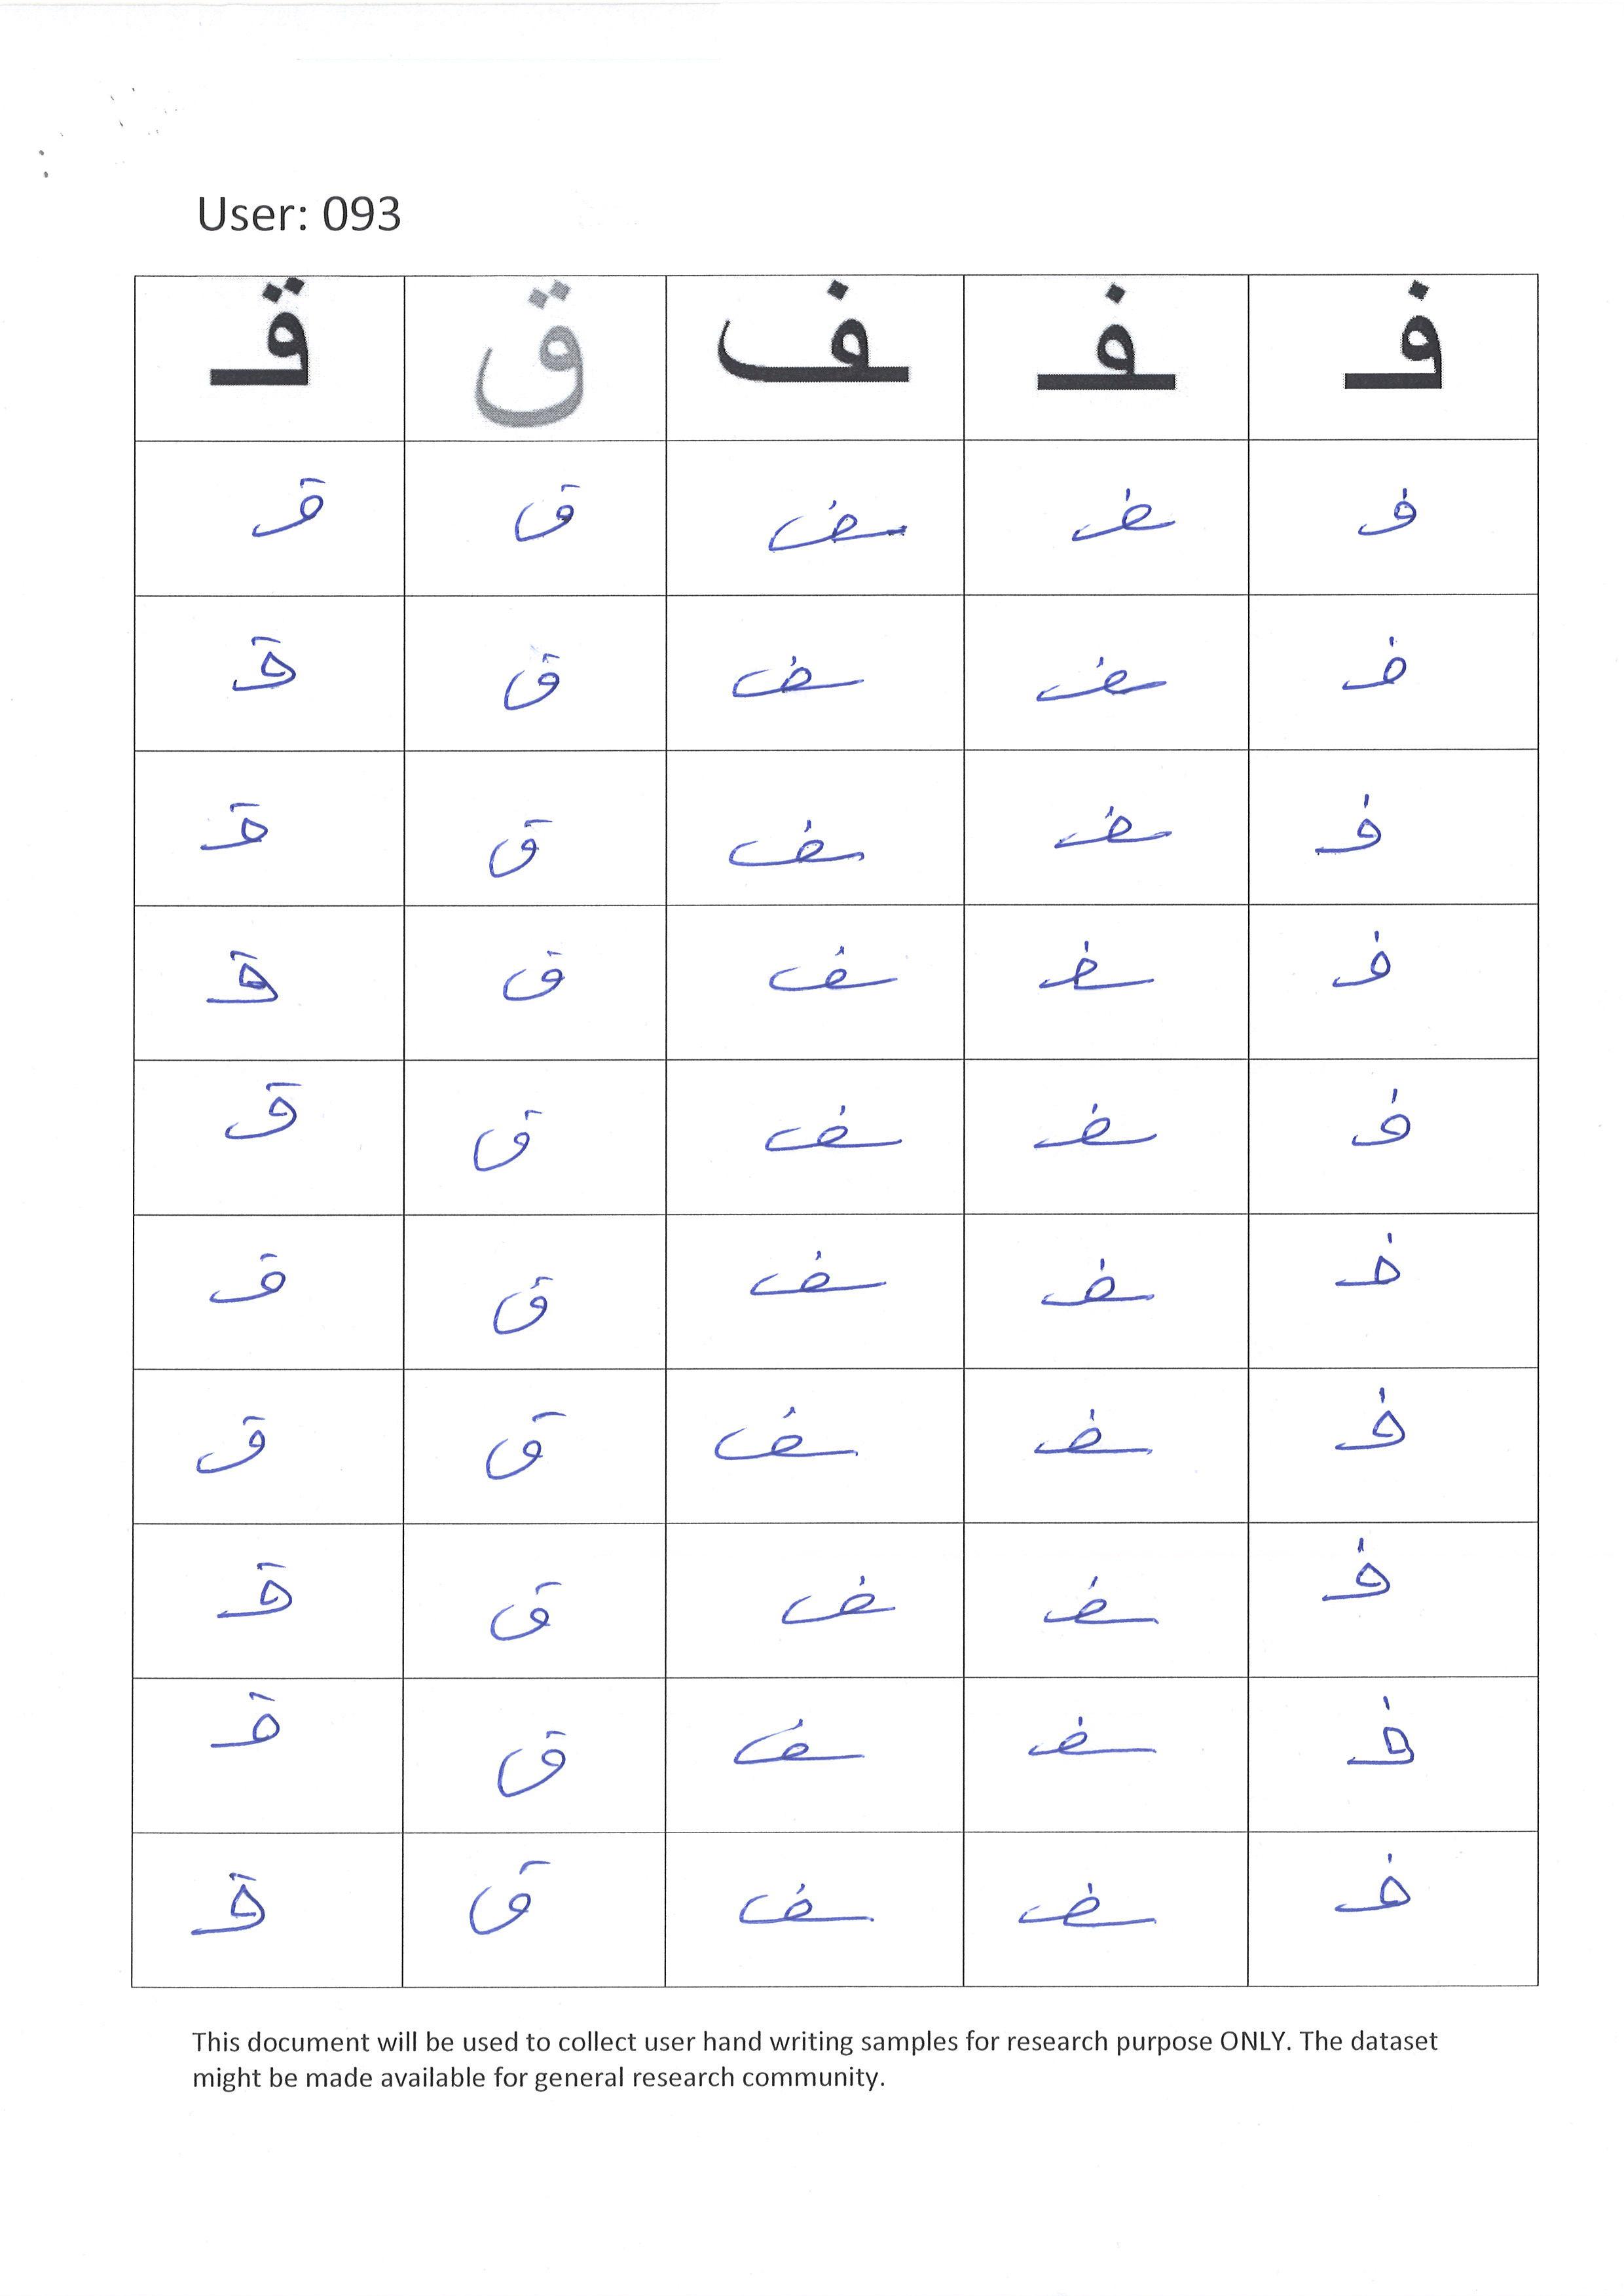 User: 093
فـ ـفـ ـف ق قـ
فـ ـفـ ـف ق قـ
فـ ـفـ ـف ق قـ
فـ ـفـ ـف ق قـ
فـ ـفـ ـف ق قـ
فـ ـفـ ـف ق قـ
فـ ـفـ ـف ق قـ
فـ ـفـ ـف ق قـ
فـ ـفـ ـف ق قـ
فـ ـفـ ـف ق قـ
فـ ـفـ ـف ق قـ
This document will be used to collect user hand writing samples for research purpose ONLY. The dataset
might be made available for general research community.